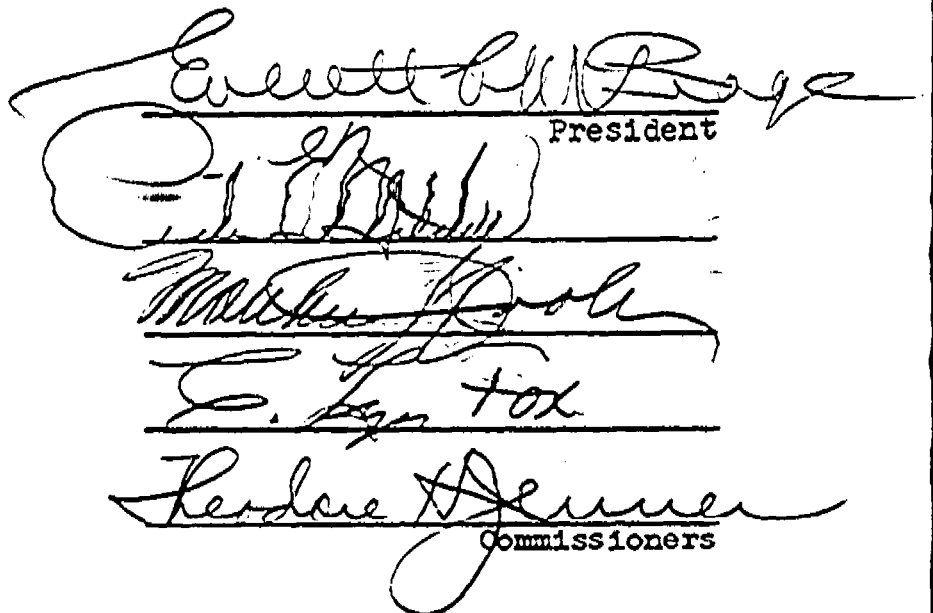 Everett C. McKeage
President
Matthew J. Dooley
E. Lyn Fox
Theodore H Jenner
Commissioners